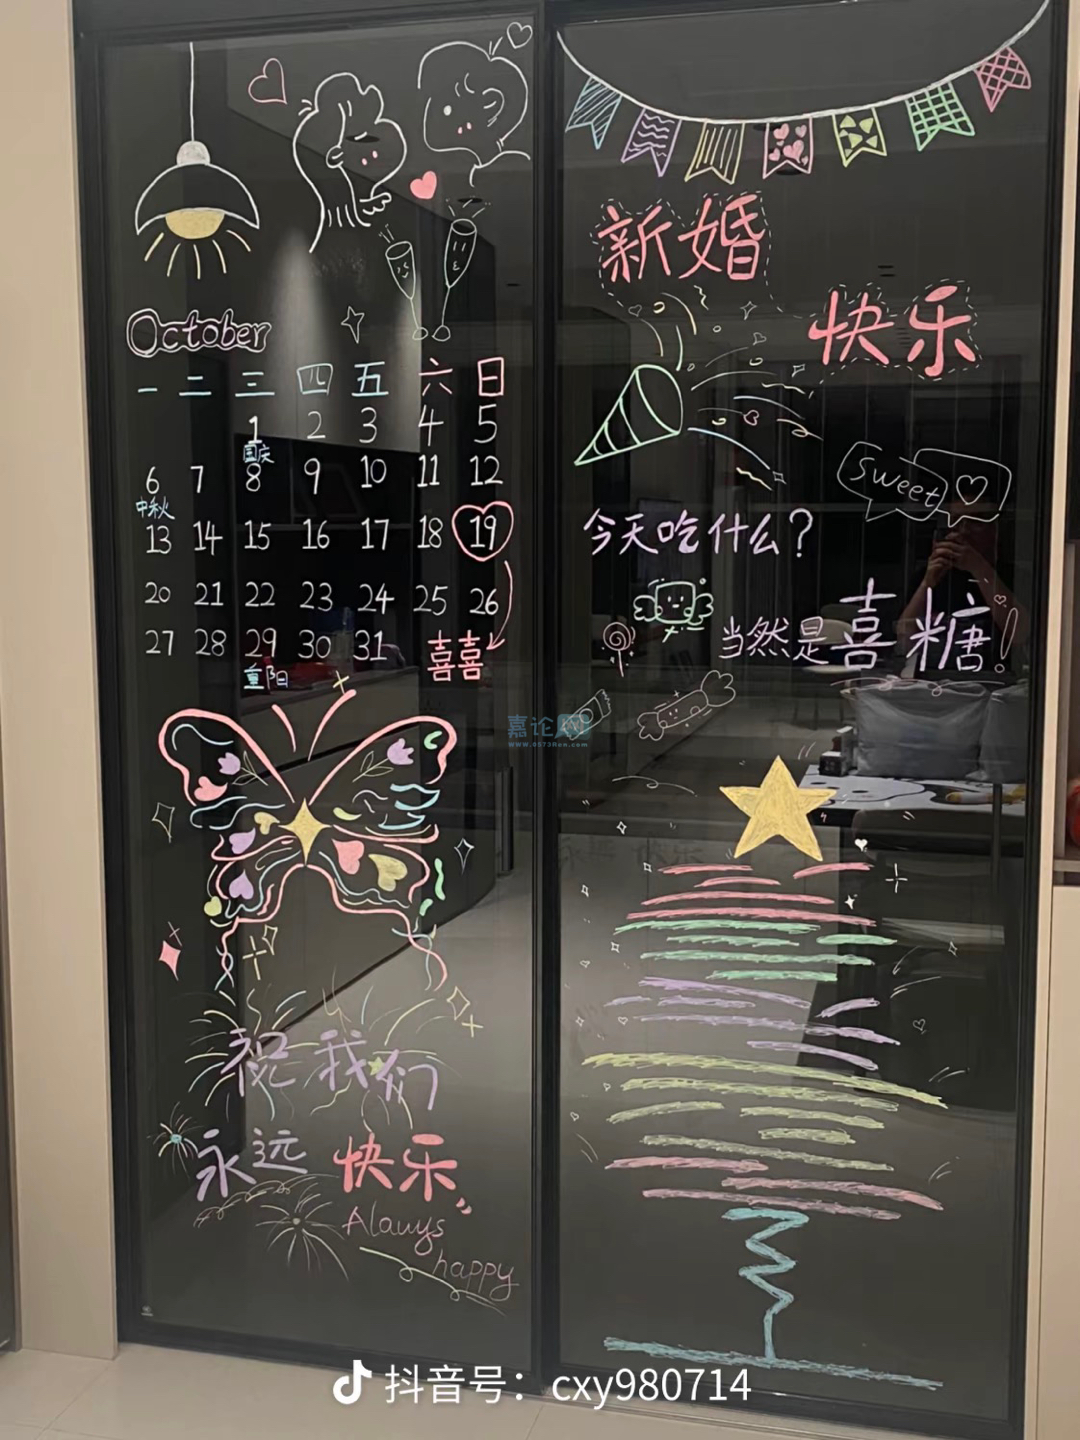 October
一 二 三 四 五 六 日
1 2 3 4 5
国庆
6 7 8 9 10 11 12
中秋
13 14 15 16 17 18 19
20 21 22 23 24 25 26
27 28 29 30 31
囍
重阳
祝我们
永远 快乐
Always
happy
新婚
快乐
sweet
今天吃什么?
当然是喜糖!
嘉论网
www.0573Ren.com
抖音号: cxy980714